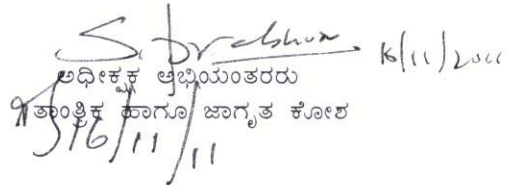 16/11/2011
ಅಧೀಕ್ಷಕ ಅಭಿಯಂತರರು
ತಾಂತ್ರಿಕ ಹಾಗೂ ಜಾಗೃತ ಕೋಶ
16/11/11